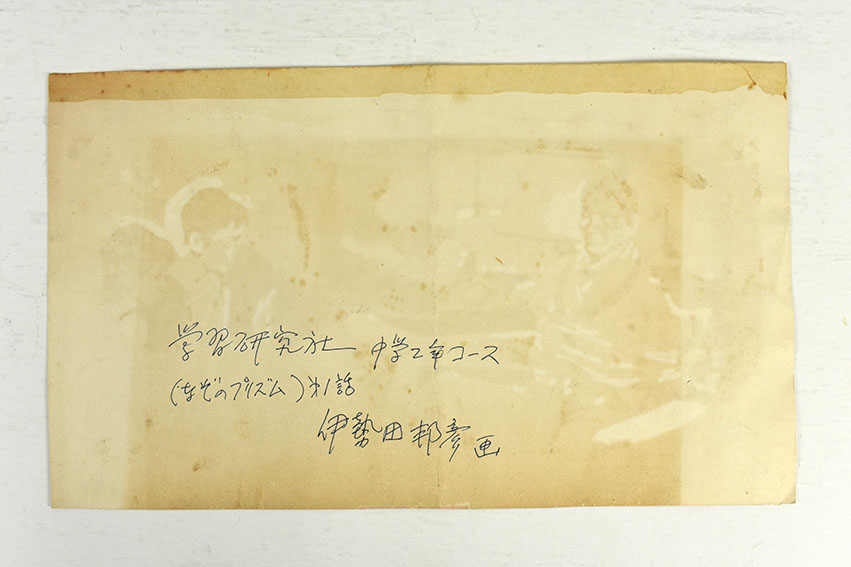 学習研究社 中学2年コース
(なぞのプリズム)才1話
伊勢田邦彦 画